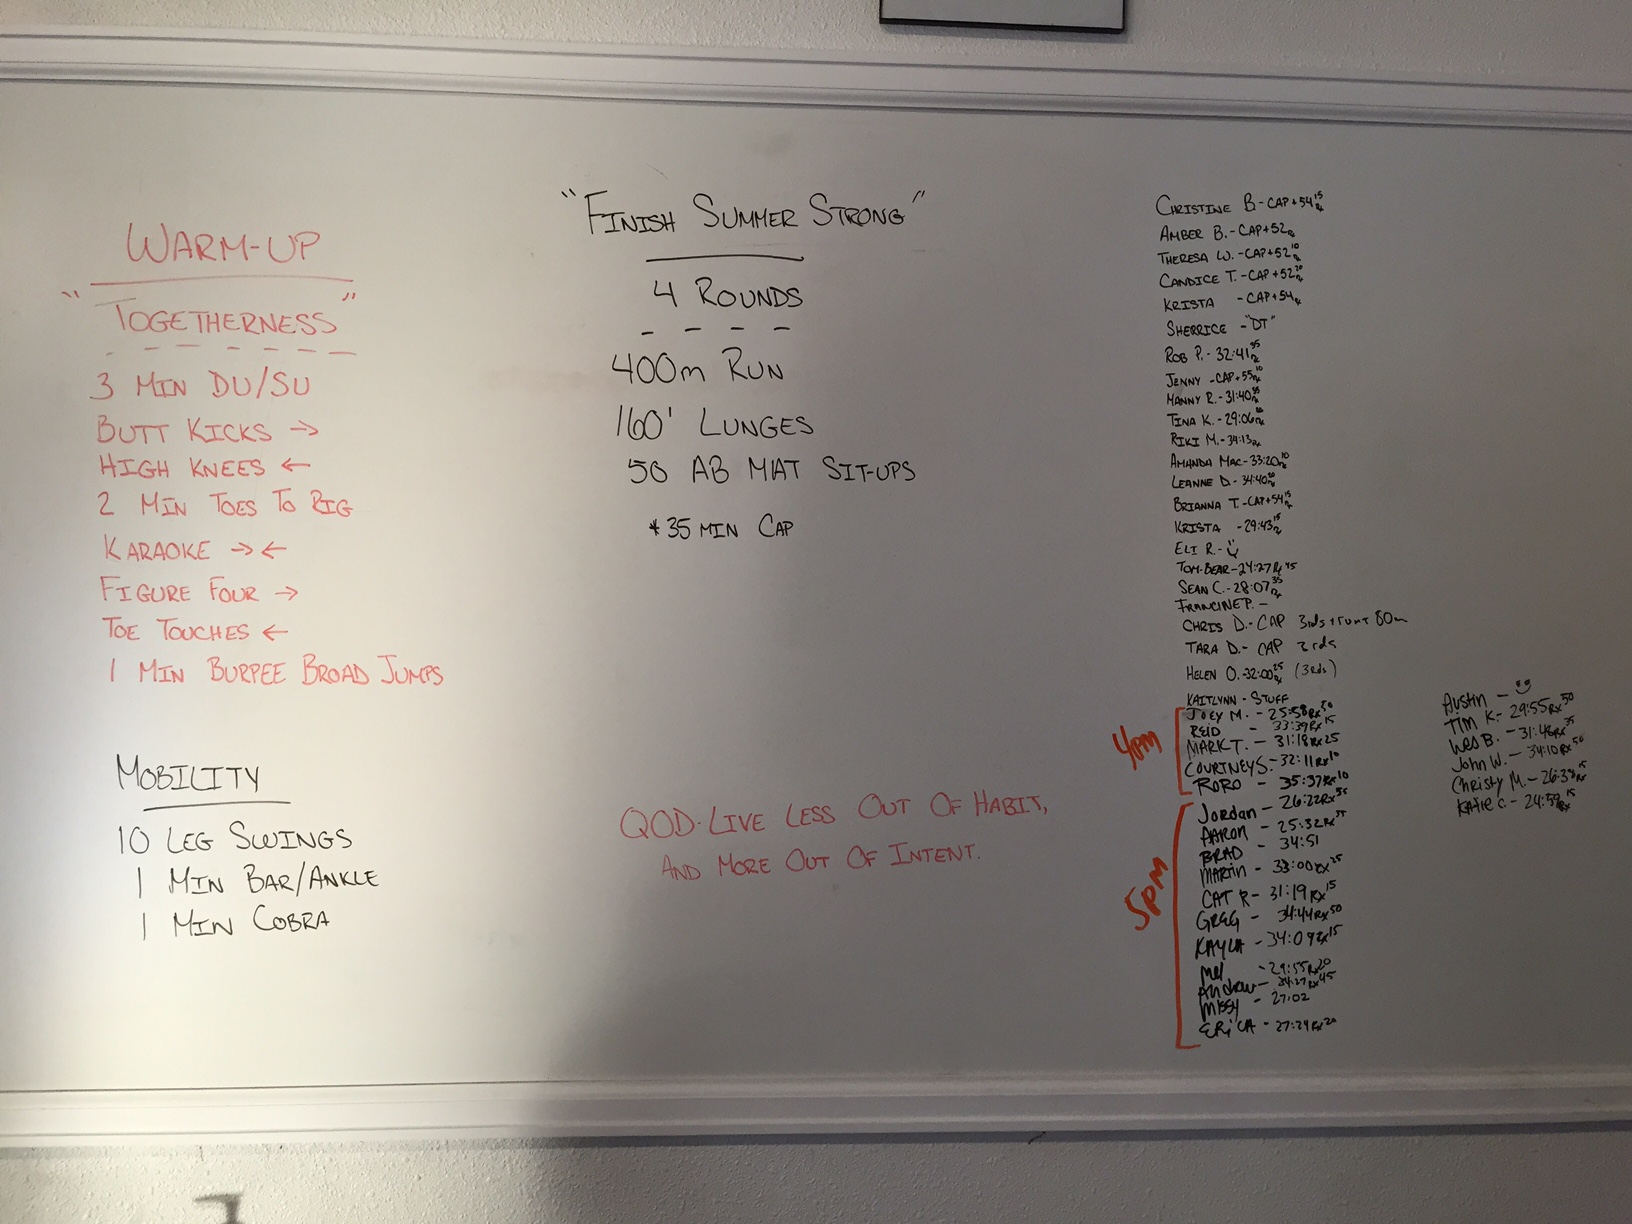 WARM-UP
"TOGETHERNESS"
3 MIN DU/SU
BUTT KICKS →
HIGH KNEES ←
2 MIN TOES TO RIG
KARAOKE → ←
FIGURE FOUR →
TOE TOUCHES ←
1 MIN BURPEE BROAD JUMPS
MOBILITY
10 LEG SWINGS
1 MIN BAR/ANKLE
1 MIN COBRA
"FINISH SUMMER STRONG"
4 ROUNDS
400m RUN
160' LUNGES
50 AB MAT SIT-UPS
*35 MIN CAP
QOD-LIVE LESS OUT OF HABIT,
AND MORE OUT OF INTENT.
CHRISTINE B.-CAP+54 15 Rx
AMBER B.-CAP+52 Rx
THERESA W.-CAP+52 10 Rx
CANDICE T.-CAP+52 20 Rx
KRISTA -CAP+54 Rx
SHERRICE -"DT"
ROB P.- 32:41 35 Rx
JENNY -CAP+55 10 Rx
MANNY R.-31:40 Rx
TINA K.-29:06 Rx
RIKI M.-34:13 Rx
AMANDA MAC-33:20 10 Rx
LEANNE D.-34:40 Rx
BRIANNA T.-CAP+54 15 Rx
KRISTA -29:43 15 Rx
ELI R.-
TOM-BEAR-24:27 Rx 45
SEAN C.-28:07 35 Rx
FRANCINE P. -
CHRIS D.-CAP 3rds + run + 80m
TARA D.- CAP 3 rds
HELEN O.-32:00 25 Rx (3rds)
KAITLYNN - STUFF
4pm
JOEY M. - 25:58 Rx 50
REID - 33:39 Rx 15
MARK T. - 31:18 Rx 25
COURTNEY S.-32:11 Rx 10
RORO - 35:37 Rx 10
5pm
Jordan - 26:22 Rx 35
AARON - 25:32 Rx
BRAD - 34:51
MARTIN - 33:00 Rx 25
CAT R - 31:19 Rx 15
GREG - 34:44 Rx 50
KAYLA - 34:09 Rx 15
Mel - 29:55 Rx 20
Andrew - 34:27 Rx 45
MISSY - 27:02
ERiCA - 27:24 Rx 20
Austin -
Tim K.- 29:55 Rx 50
Wes B. - 31:46 Rx 35
John W. - 34:10 Rx 50
Christy M. - 26:38 Rx 15
Katie C. - 24:59 Rx 15